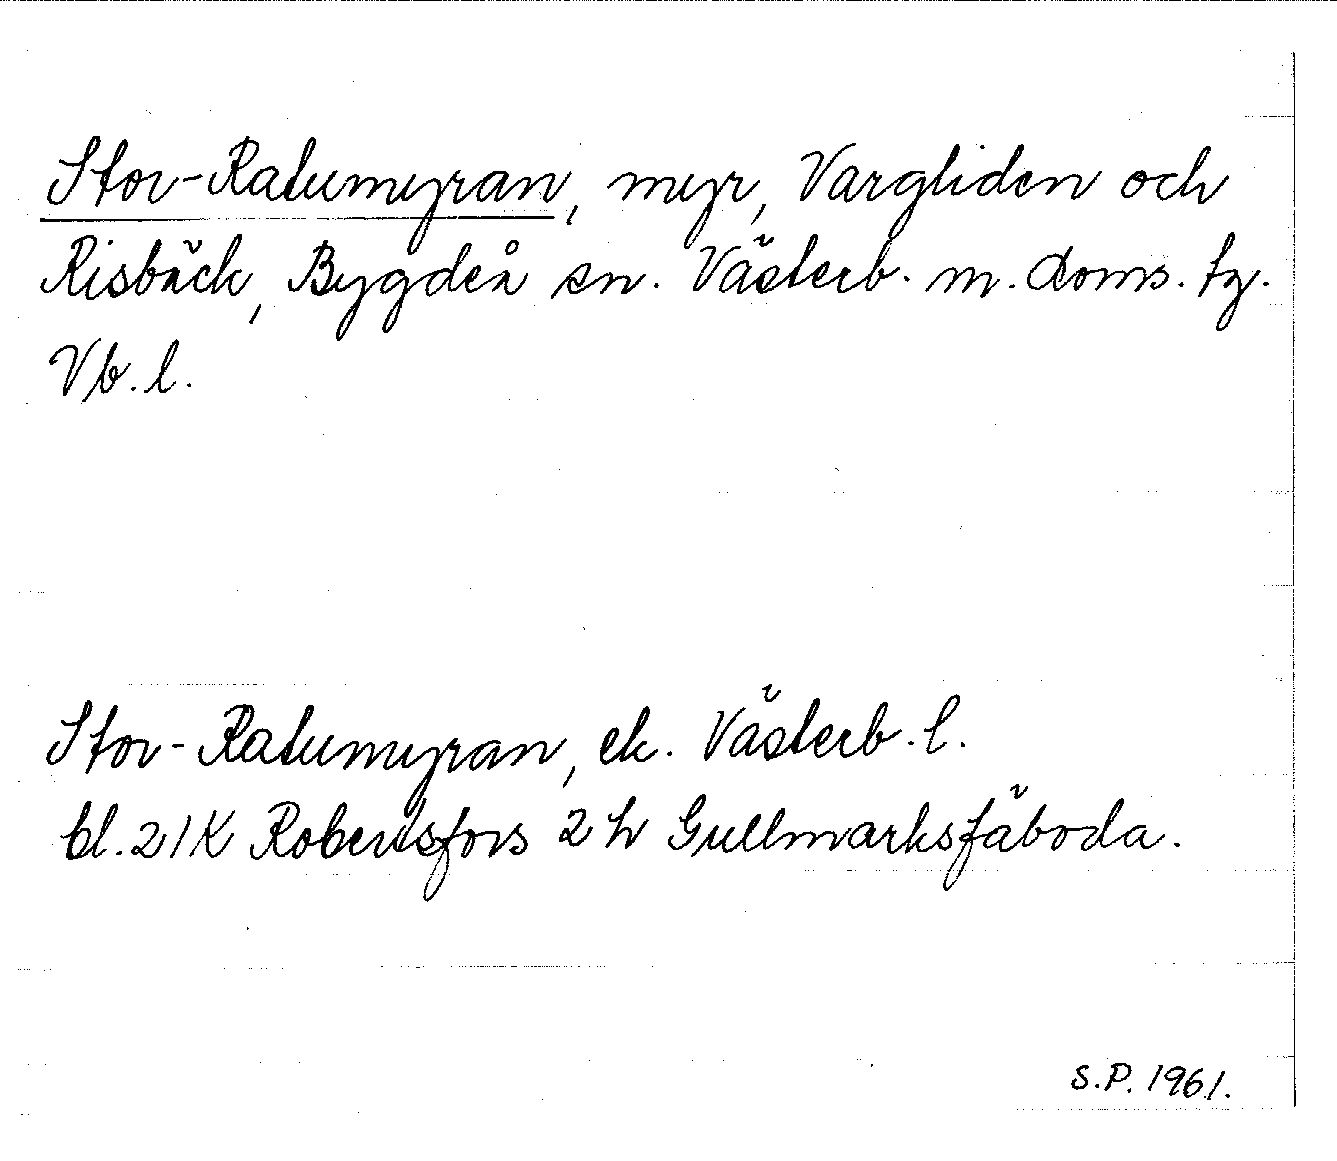 Stor-Ratumyran, myr, Vargliden och
Risbäck, Bygdeå sn. Västerb. m. doms. tg.
Vb. l.
Stor-Ratumyran, ek. Västerb. l.
bl. 21 K Robertsfors 2 h Gullmarksfäboda.
S.P. 1961.